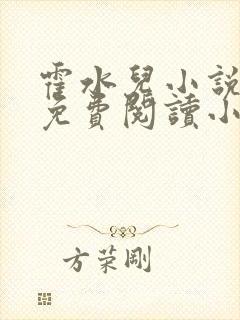 霍水兒小說
免費閱讀小
方荣剛